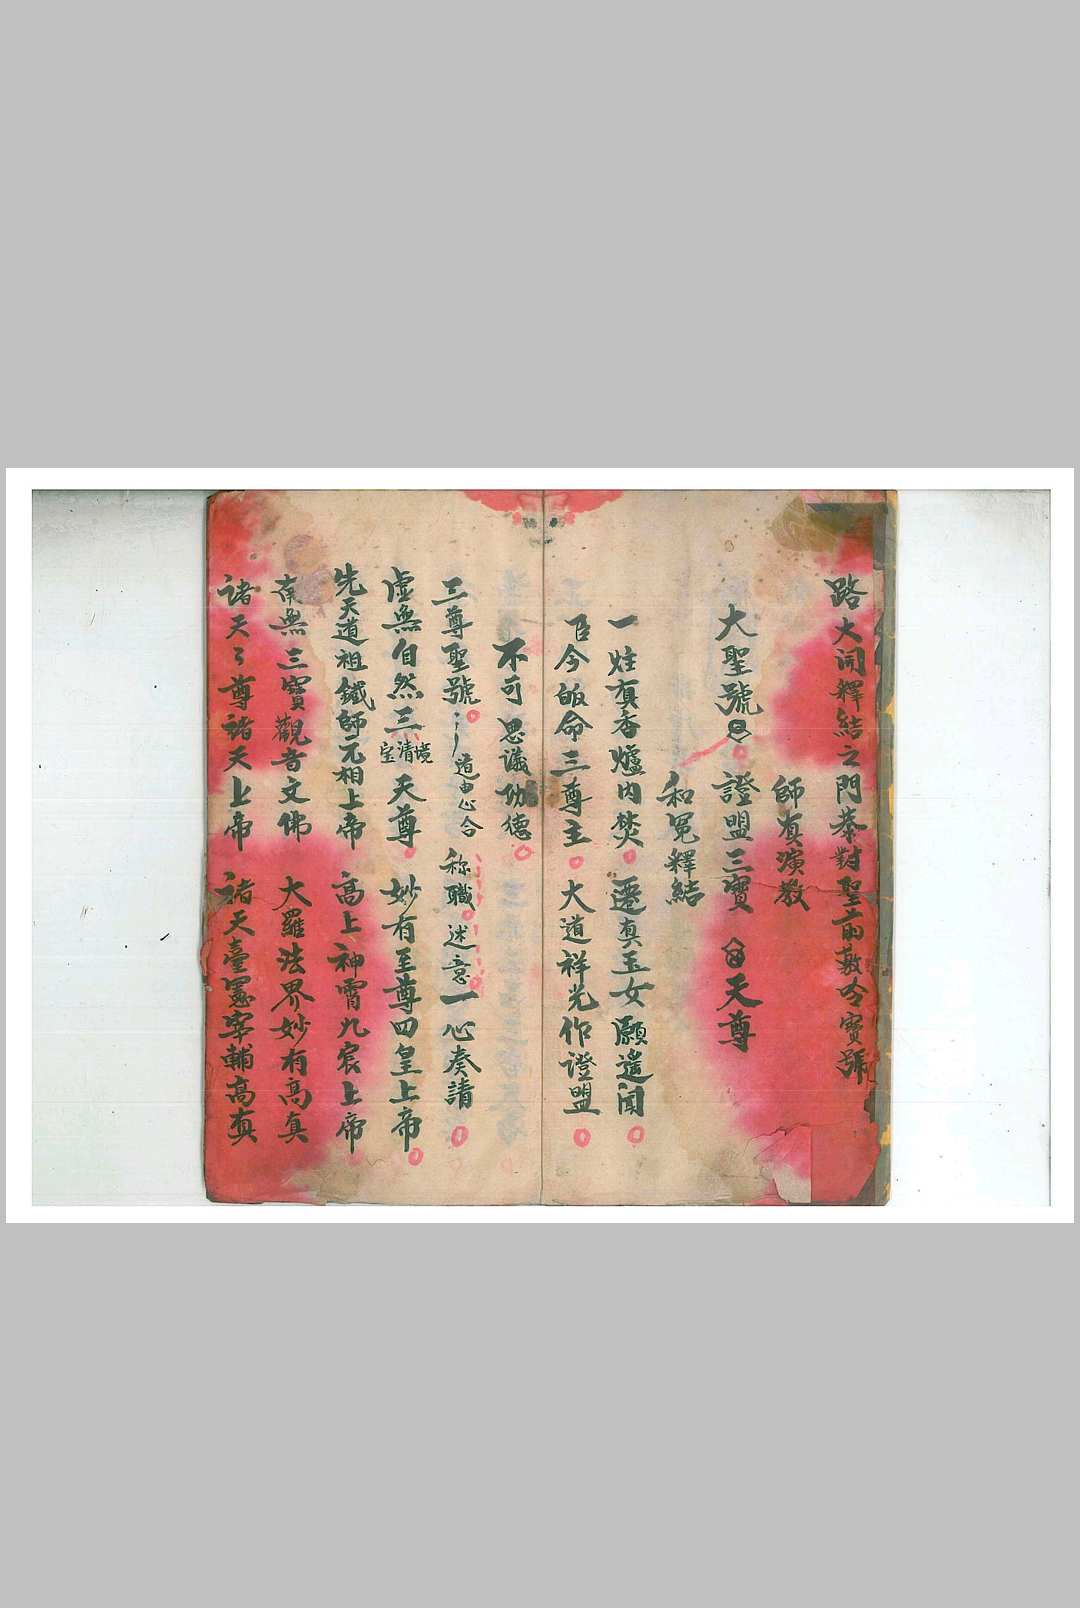 路大開釋結之門恭對聖前敷令寶號
師真演教
大聖號 證盟三寶 天尊
和冤釋結
一炷真香爐內焚 遷真玉女願遙聞
臣今皈命三尊主 大道祥光作證盟
不可思議功德
三尊聖號 道由心合 称職 述意 一心奏請
虛無自然三寶清境天尊 妙有至尊四皇上帝
先天道祖鐵師元相上帝 高上神霄九宸上帝
南無三寶觀音文佛 大羅法界妙有高真
諸天〻尊諸天上帝 諸天臺憲宰輔高真